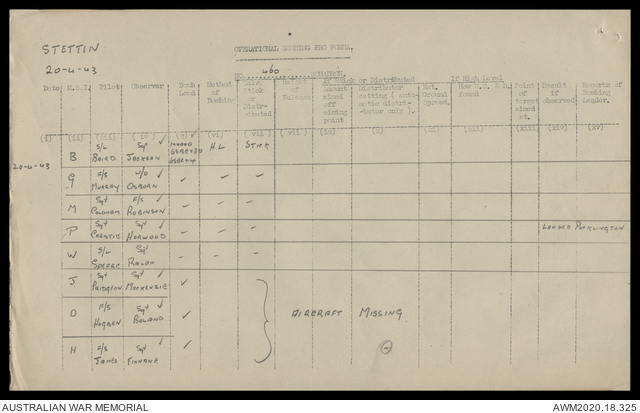 STETTIN
20-4-43
OPERATIONAL BOMBING PRO FORMA.
NO. 460 SQUADRON
If Stick or Distributed
If High Level
Date M.S.I. Pilot Observer Bomb Load Method of Bombing Stick or Distributed Height of Release Distributor setting (automatic distributor only). Met. Ground Speed. How found Point of target aimed at. Result if observed. Remarks of Bombing Leader.
(i) (ii) (iii) (iv) (v) (vi) (vii) (viii) (ix) (x) (xi) (xii) (xiii) (xiv) (xv)
20-4-43 B S/L BAIRD Sgt JACKSON H.L STICK
G F/S MURRAY W/O OSBORN
M Sgt F/S ROBINSON
P Sgt Sgt HARWOOD LANDED POCKLINGTON
W S/L SPEARE Sgt
J Sgt PRIDGEON Sgt MACKENZIE
O F/S HOGBEN Sgt BOLAND AIRCRAFT MISSING
H F/S JAMES Sgt FINNANE
AUSTRALIAN WAR MEMORIAL
AWM2020.18.325